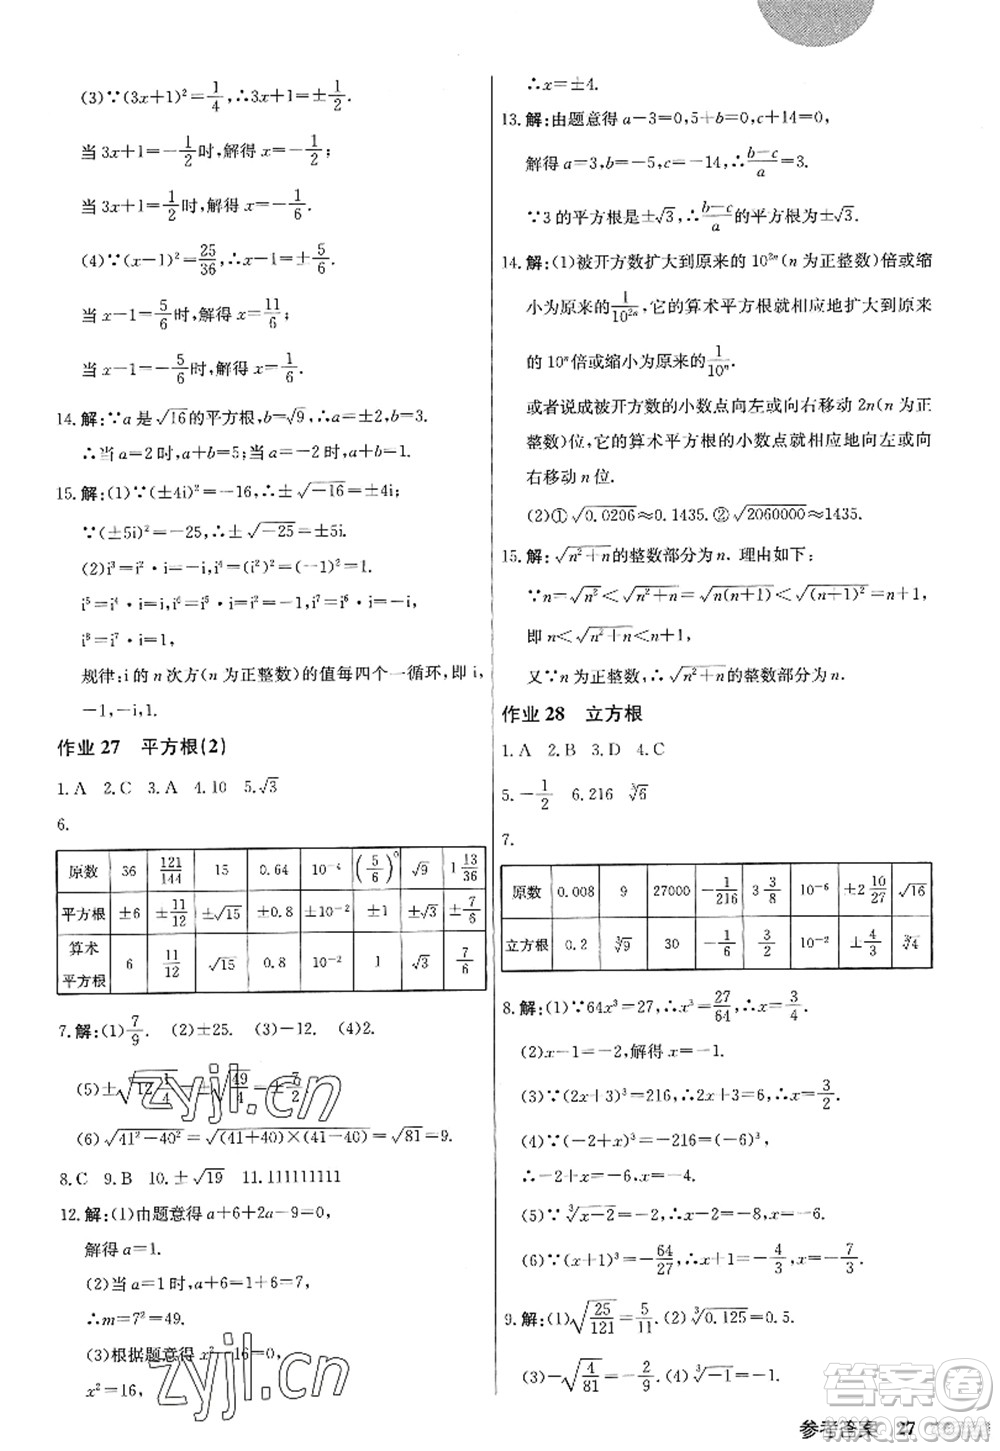 (3)∵(3x+1)²=1/4,∴3x+1=±1/2.
当 3x+1=-1/2时,解得 x=-1/2;
当 3x+1=1/2时,解得 x=-1/6.
(4)∵(x-1)²=25/36,∴x-1=±5/6.
当 x-1=5/6时,解得 x=11/6;
当 x-1=-5/6时,解得 x=1/6.
14.解:∵a 是√16的平方根,b=√9,∴a=±2,b=3.
∴当 a=2时,a+b=5;当 a=-2时,a+b=1.
15.解:(1)∵(±4i)²=-16,∴±√-16=±4i;
∵(±5i)²=-25,∴±√-25=±5i.
(2)i³=i²·i=-i,i⁴=i³·i=1,
i⁵=i⁴·i=i,i⁶=i⁵·i=-1,i⁷=i⁶·i=-i,
i⁸=i⁷·i=1,
规律:i的 n 次方(n 为正整数)的值每四个一循环,即 i,
-1,-i,1.
作业 27 平方根(2)
1.A 2.C 3.A 4.10 5.√3
6.
原数 36 121/144 15 0.64 10⁻⁴ (5/6)⁰ √9 1 13/36
平方根 ±6 ±11/12 ±√15 ±0.8 ±10⁻² ±1 ±√3 ±7/6
算术平方根 6 11/12 √15 0.8 10⁻² 1 √3 7/6
7.解:(1)7/9. (2)±25. (3)-12. (4)2.
(5)±√(12 1/4)=±√(49/4)=±7/2.
(6)√(41²-40²)=√((41+40)×(41-40))=√81=9.
8.C 9.B 10.±√19 11.111111111
12.解:(1)由题意得 a+6+2a-9=0,
解得 a=1.
(2)当 a=1时,a+6=1+6=7,
∴m=7²=49.
(3)根据题意得 x²-16=0,
x²=16,
∴x=±4.
13.解:由题意得 a-3=0,5+b=0,c+14=0,
解得 a=3,b=-5,c=-14,∴(b-c)/a=3.
∵3的平方根是±√3,∴(b-c)/a的平方根为±√3.
14.解:(1)被开方数扩大到原来的10²ⁿ(n 为正整数)倍或缩
小为原来的1/10²ⁿ,它的算术平方根就相应地扩大到原来
的 10ⁿ倍或缩小为原来的1/10ⁿ.
或者说成被开方数的小数点向左或向右移动 2n(n 为正
整数)位,它的算术平方根的小数点就相应地向左或向
右移动 n 位.
(2)①√0.0206≈0.1435.②√2060000≈1435.
15.解:√(n²+n)的整数部分为 n. 理由如下:
∵n=√n²<√(n²+n)=√(n(n+1))<√((n+1)²)=n+1,
即 n<√(n²+n)<n+1.
又∵n 为正整数,∴√(n²+n)的整数部分为 n.
作业 28 立方根
1.A 2.B 3.D 4.C
5.-1/2 6.216 ∛6
7.
原数 0.008 9 27000 -1/216 3 3/8 10⁻⁶ ±2 10/27 √16
立方根 0.2 ∛9 30 -1/6 3/2 10⁻² ±4/3 ∛4
8.解:(1)∵64x³=27,∴x³=27/64,∴x=3/4.
(2)x-1=-2,解得 x=-1.
(3)∵(2x+3)³=216,∴2x+3=6,∴x=3/2.
(4)∵(-2+x)³=-216=(-6)³,
∴-2+x=-6,∴x=-4.
(5)∵∛(x-2)=-2,∴x-2=-8,∴x=-6.
(6)∵(x+1)³=-64/27,∴x+1=-4/3,∴x=-7/3.
9.解:(1)√(25/121)=5/11. (2)∛0.125=0.5.
(3)-√(4/81)=-2/9. (4)∛-1=-1.
zyjl.cn
zyjl.cn
答案圈
参考答案 27